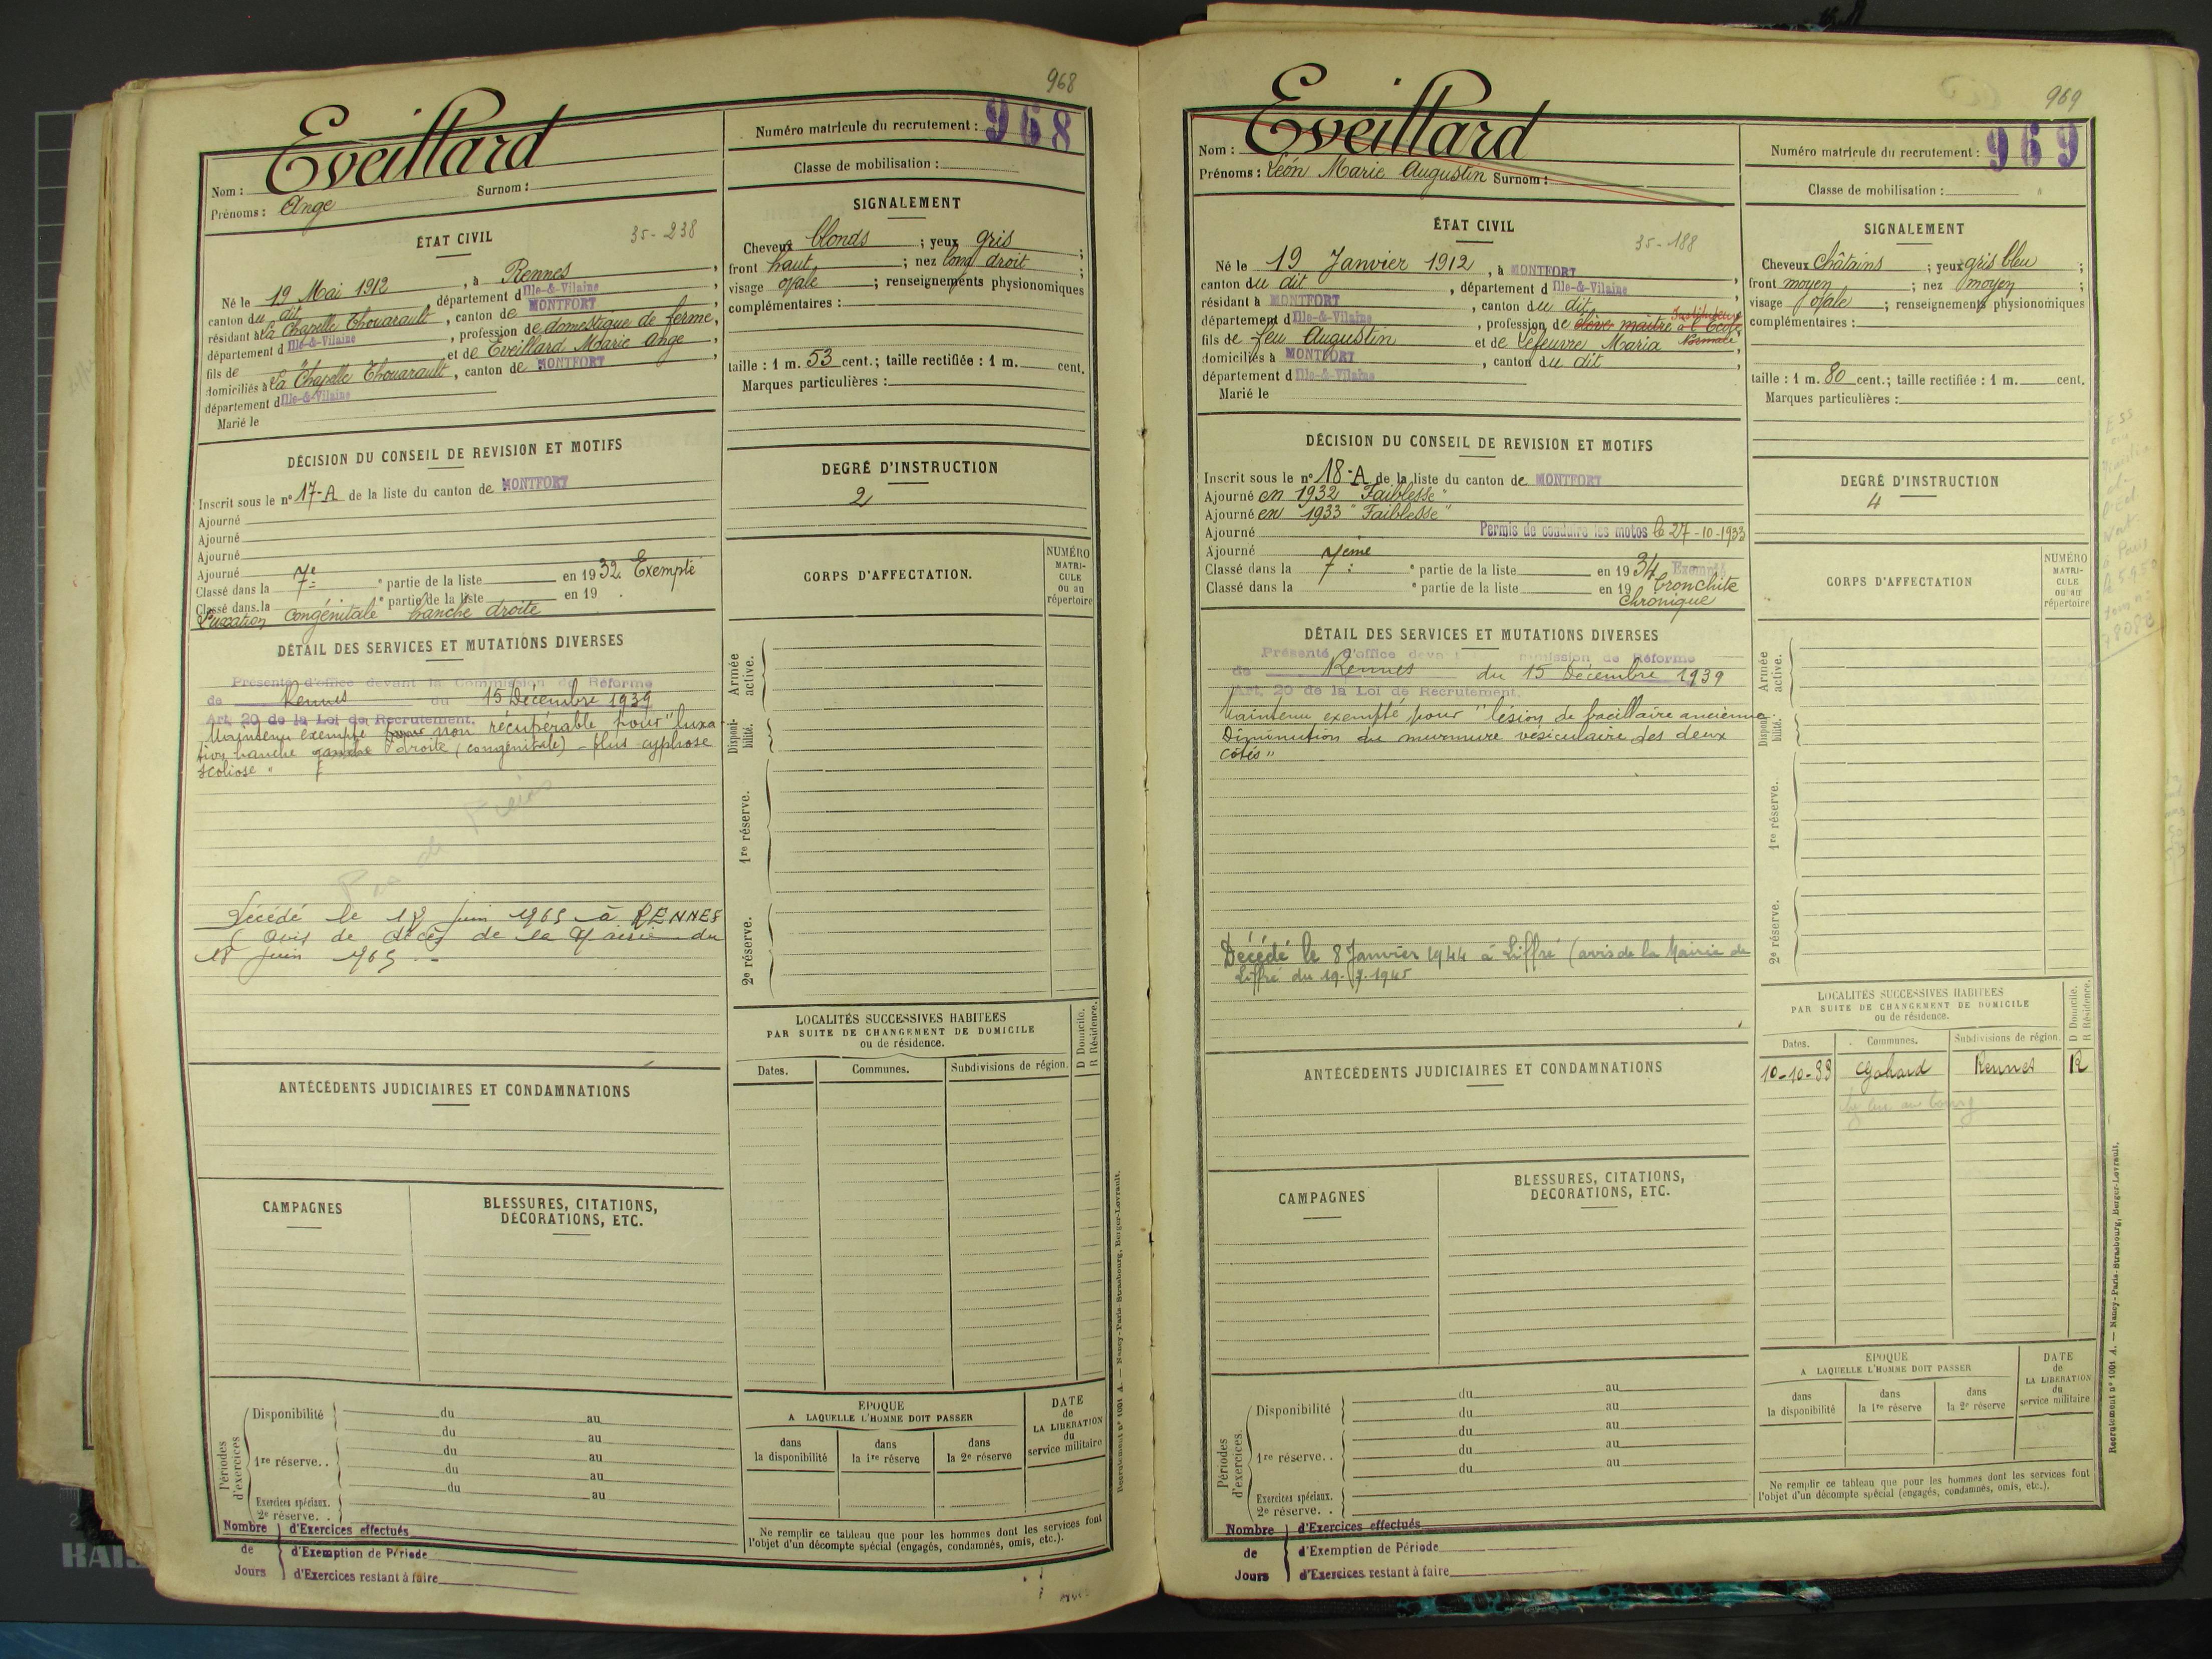 968
Eveillard
Nom :
Surnom :
Prénoms : Ange
Numéro matricule du recrutement : 968
Classe de mobilisation :
ÉTAT CIVIL
35-238
Né le 19 Mai 1912, à Rennes,
canton du dit, département d Ille-&-Vilaine,
résidant à La Chapelle Thouarault, canton de MONTFORT,
département d Ille-&-Vilaine, profession de domestique de ferme,
fils de " et de Eveillard Marie Ange,
domiciliés à La Chapelle Thouarault, canton de MONTFORT,
département d Ille-&-Vilaine
Marié le
SIGNALEMENT
Cheveux blonds ; yeux gris ;
front haut ; nez long droit ;
visage ovale ; renseignements physionomiques
complémentaires :
taille : 1 m. 53 cent.; taille rectifiée : 1 m. cent.
Marques particulières :
DÉCISION DU CONSEIL DE REVISION ET MOTIFS
Inscrit sous le n° 17-A de la liste du canton de MONTFORT
Ajourné
Ajourné
Ajourné
Ajourné
Classé dans la 7e e partie de la liste en 1932 Exempté
Classé dans la e partie de la liste en 19
Luxation congénitale hanche droite
DEGRÉ D'INSTRUCTION
2
CORPS D'AFFECTATION.
NUMÉRO
MATRI-
CULE
OU AU
répertoire
DÉTAIL DES SERVICES ET MUTATIONS DIVERSES
Présenté d'office devant la Commission de Réforme
de Rennes du 15 Décembre 1939
Art. 20 de la Loi de Recrutement.
Maintenu exempté pour non récupérable pour "luxa-
tion hanche gauche droite (congénitale) - plus cyphose
scoliose "
Décédé le 18 juin 1965 à RENNES
(Avis de décès de la Mairie du
18 juin 1965
Armée
active.
Disponi-
bilité.
1re réserve.
2e réserve.
LOCALITÉS SUCCESSIVES HABITÉES
PAR SUITE DE CHANGEMENT DE DOMICILE
ou de résidence.
D Domicile.
R Résidence.
Dates.
Communes.
Subdivisions de région.
ANTÉCÉDENTS JUDICIAIRES ET CONDAMNATIONS
CAMPAGNES
BLESSURES, CITATIONS,
DÉCORATIONS, ETC.
Périodes
d'exercices
Disponibilité
du au
du au
1re réserve. .
du au
du au
du au
Exercices spéciaux.
2e réserve. .
Nombre
de
Jours
d'Exercices effectués
d'Exemption de Période
d'Exercices restant à faire
ÉPOQUE
A LAQUELLE L'HOMME DOIT PASSER
dans
la disponibilité
dans
la 1re réserve
dans
la 2e réserve
DATE
de
LA LIBÉRATION
du
service militaire
Ne remplir ce tableau que pour les hommes dont les services font
l'objet d'un décompte spécial (engagés, condamnés, omis, etc.).
Recrutement n° 1001 A. — Nancy-Paris-Strasbourg, Berger-Levrault.
969
Eveillard
Nom :
Prénoms : Léon Marie Augustin Surnom :
Numéro matricule du recrutement : 969
Classe de mobilisation :
ÉTAT CIVIL
35-188
Né le 19 Janvier 1912, à MONTFORT,
canton du dit, département d Ille-&-Vilaine,
résidant à MONTFORT, canton du dit,
département d Ille-&-Vilaine, profession de élève maître à l'École Normale Instituteur,
fils de feu Augustin et de Lefeuvre Maria,
domiciliés à MONTFORT, canton du dit,
département d Ille-&-Vilaine
Marié le
SIGNALEMENT
Cheveux Châtains ; yeux gris bleu ;
front moyen ; nez moyen ;
visage ovale ; renseignements physionomiques
complémentaires :
taille : 1 m. 80 cent.; taille rectifiée : 1 m. cent.
Marques particulières :
DÉCISION DU CONSEIL DE REVISION ET MOTIFS
Inscrit sous le n° 18-A de la liste du canton de MONTFORT
Ajourné en 1932 "Faiblesse"
Ajourné en 1933 "Faiblesse"
Ajourné Permis de conduire les motos le 27-10-1933
Ajourné 7ème
Classé dans la 7e e partie de la liste en 1934 Exempté
Classé dans la e partie de la liste en 19 bronchite
Chronique
DEGRÉ D'INSTRUCTION
4
CORPS D'AFFECTATION
NUMÉRO
MATRI-
CULE
OU AU
répertoire
DÉTAIL DES SERVICES ET MUTATIONS DIVERSES
Présenté d'office devant mmission de Réforme
de Rennes du 15 Décembre 1939
Art. 20 de la Loi de Recrutement.
Maintenu exempté pour "lésion de bacillaire ancienne
Diminution du murmure vésiculaire des deux
côtés"
Décédé le 8 Janvier 1944 à Liffré (avis de la Mairie de
Liffré du 19-7-1945
Armée
active.
Disponi-
bilité.
1re réserve.
2e réserve.
LOCALITÉS SUCCESSIVES HABITÉES
PAR SUITE DE CHANGEMENT DE DOMICILE
ou de résidence.
D Domicile.
R Résidence.
Dates.
Communes.
Subdivisions de région
10-10-33 Gahard Rennes R
au bourg
ANTÉCÉDENTS JUDICIAIRES ET CONDAMNATIONS
CAMPAGNES
BLESSURES, CITATIONS,
DÉCORATIONS, ETC.
Périodes
d'exercices.
Disponibilité
du au
du au
1re réserve. .
du au
du au
du au
Exercices spéciaux.
2e réserve. .
Nombre
de
Jours
d'Exercices effectués
d'Exemption de Période
d'Exercices restant à faire
ÉPOQUE
A LAQUELLE L'HOMME DOIT PASSER
dans
la disponibilité
dans
la 1re réserve
dans
la 2e réserve
DATE
de
LA LIBÉRATION
du
service militaire
Ne remplir ce tableau que pour les hommes dont les services font
l'objet d'un décompte spécial (engagés, condamnés, omis, etc.).
Recrutement n° 1001 A. — Nancy-Paris-Strasbourg, Berger-Levrault.